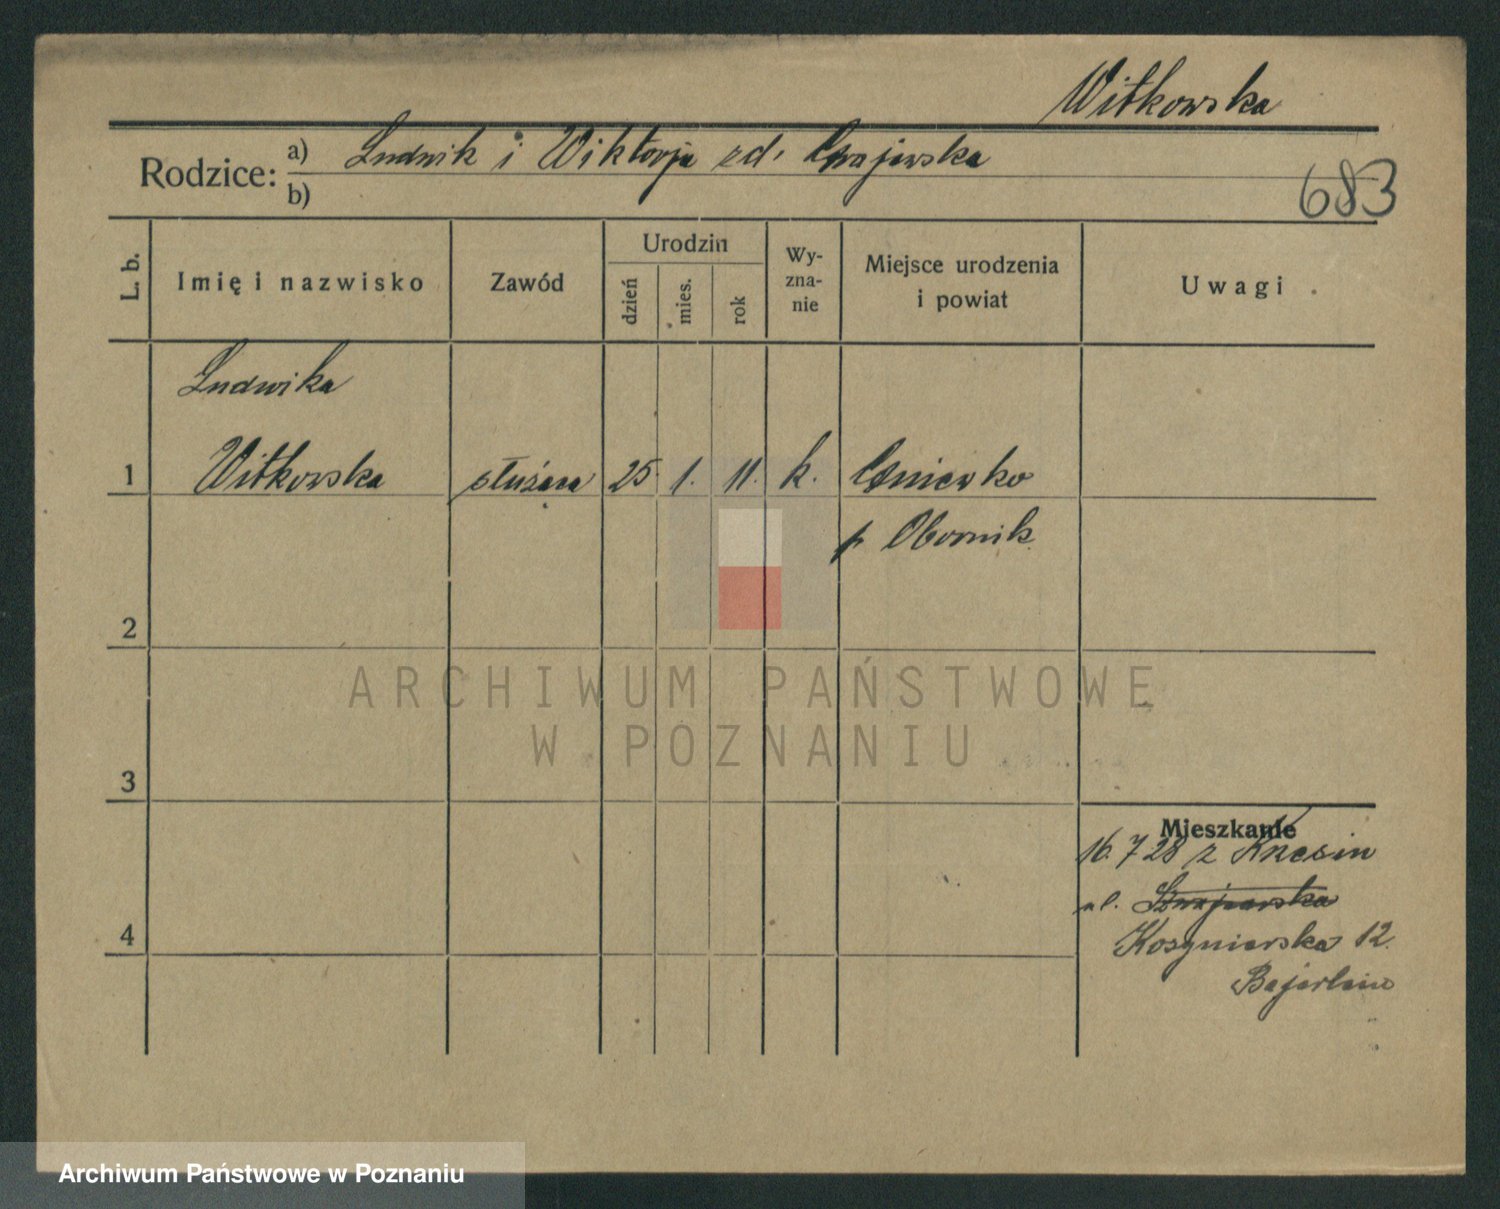 Witkowska
Rodzice: a) Ludwik i Wiktorja zd. Grajewska
b)
683
L. b.
Imię i nazwisko
Zawód
Urodzin
dzień
mies.
rok
Wy-
zna-
nie
Miejsce urodzenia
i powiat
Uwagi
Ludwika
1 Witkowska służąca 25. 1. 11. k.
p. Obornik
2
3
4
ARCHIWUM PAŃSTWOWE
W POZNANIU
Mieszkanie
16. 7 28 z Krzesin
ul.
12.
Bajerlein
Archiwum Państwowe w Poznaniu